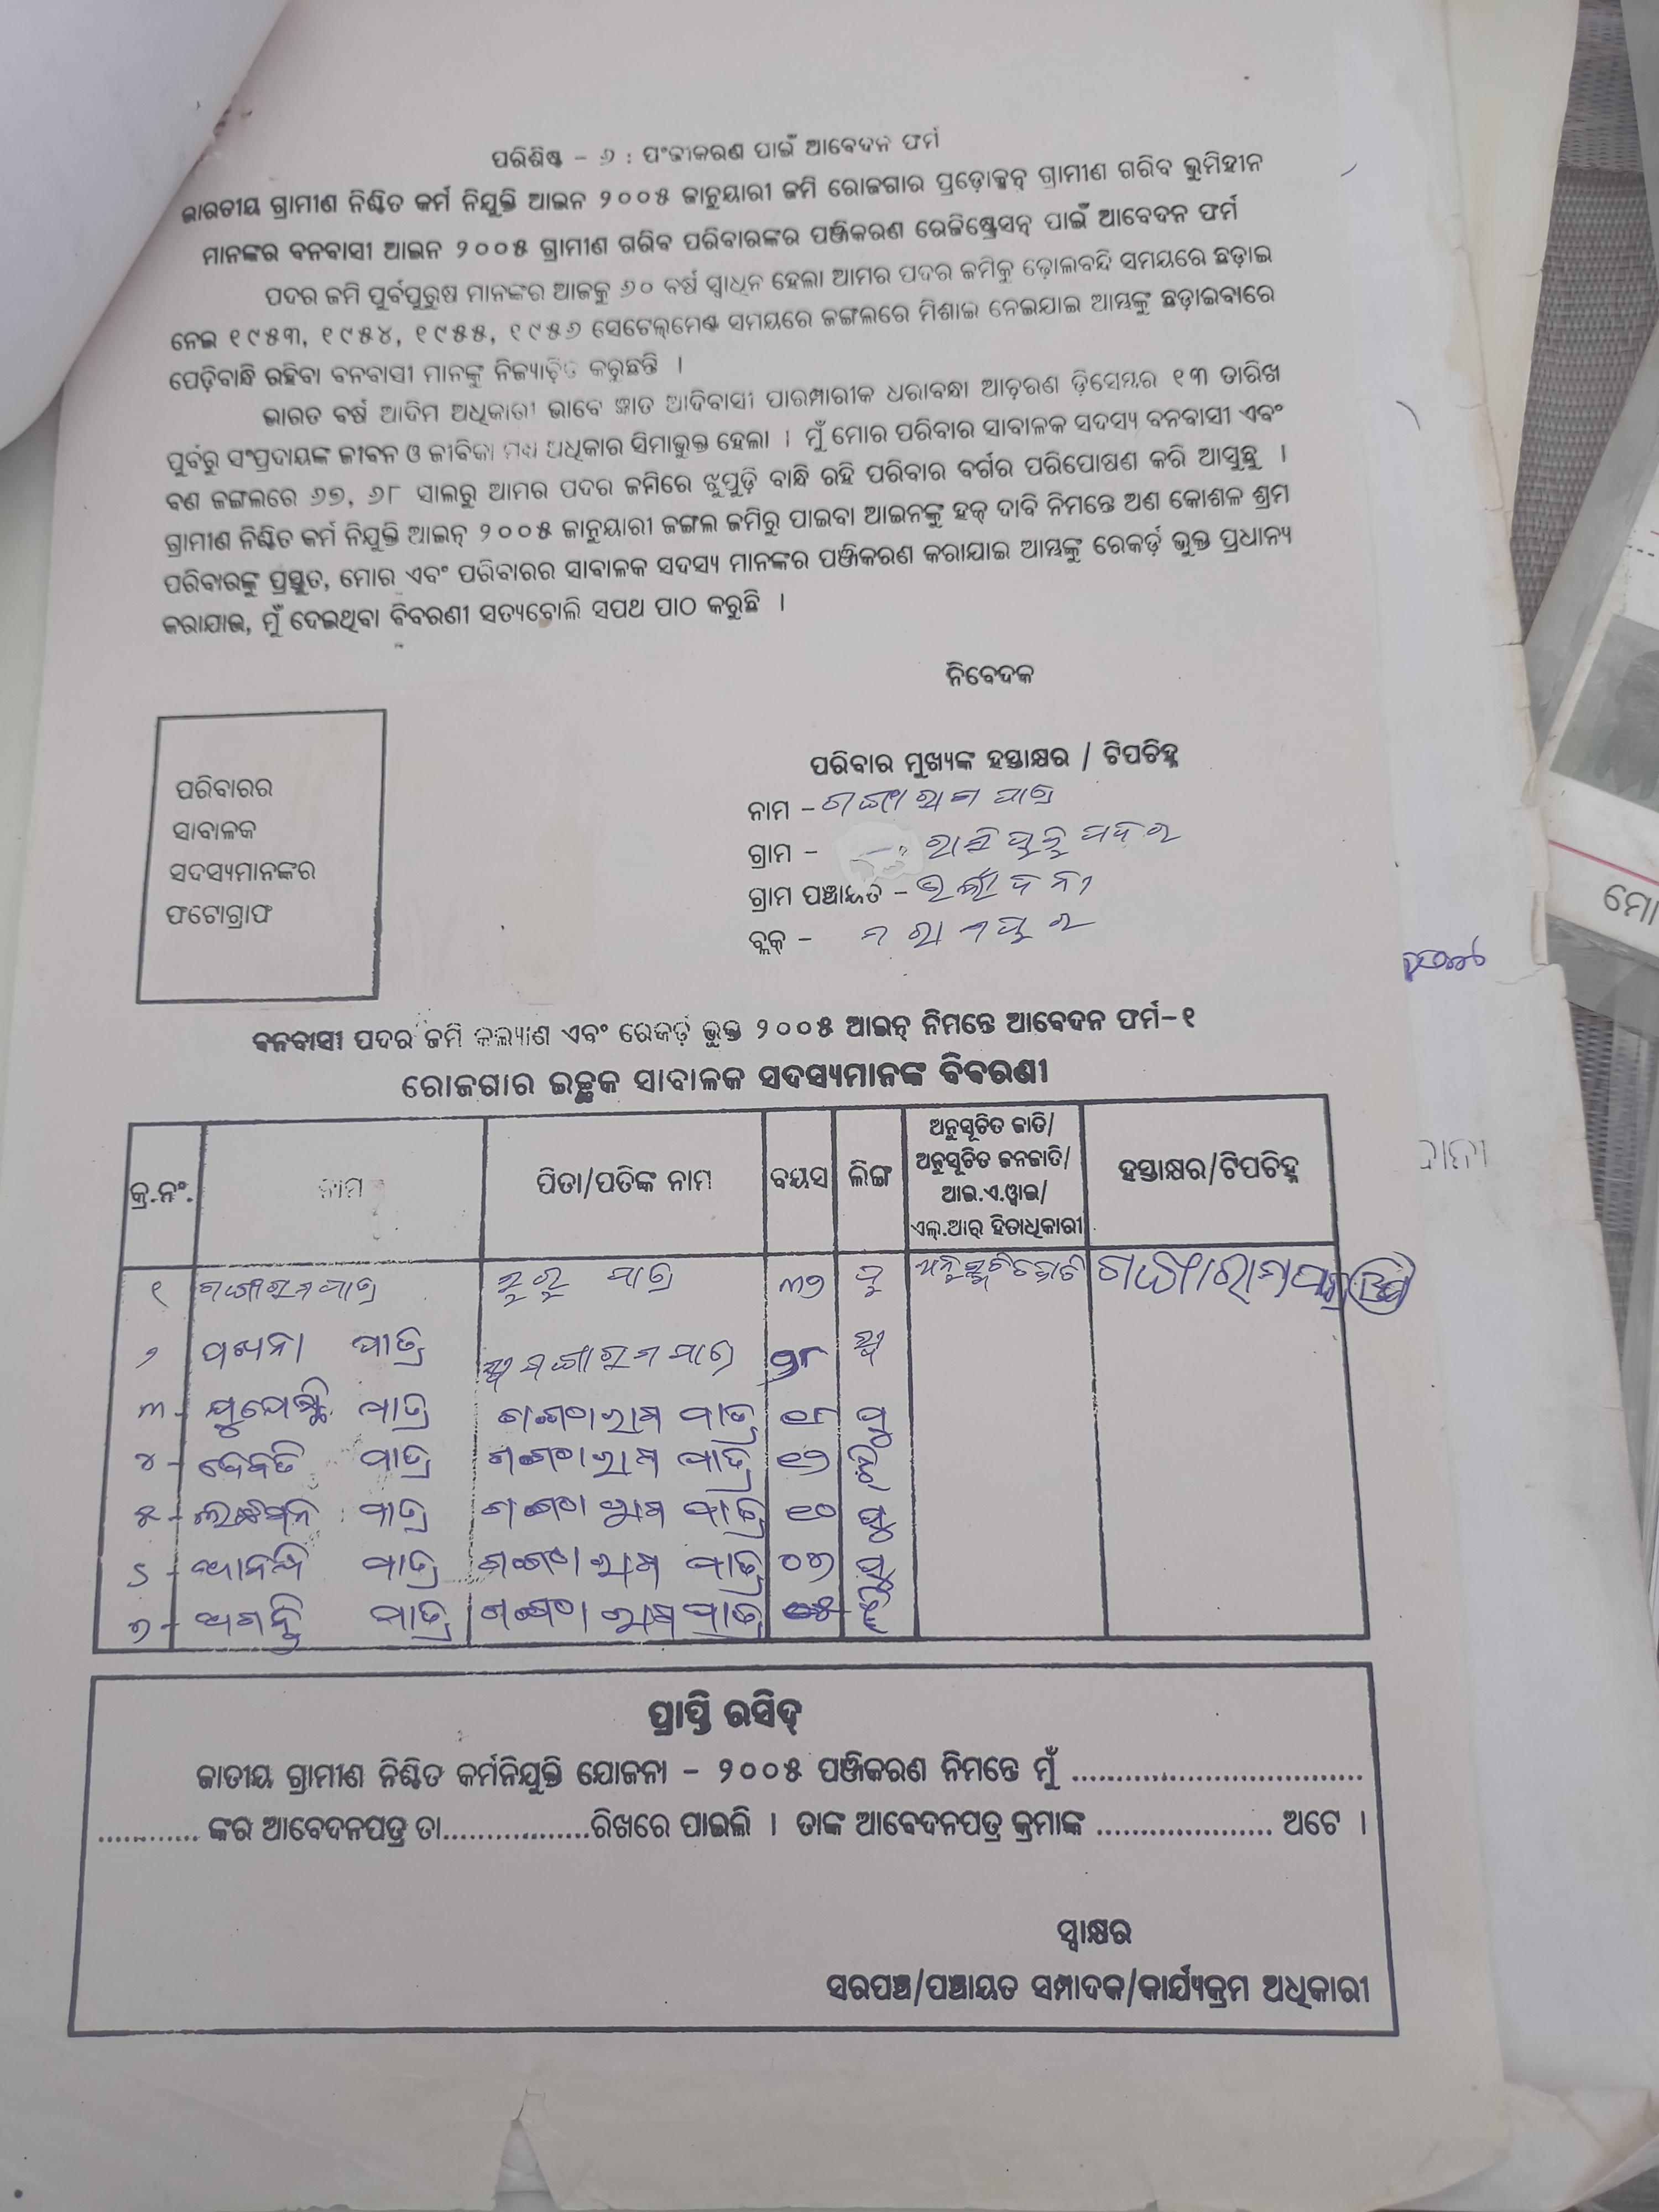 ପରିଶିଷ୍ଟ – ୬ : ପଂଜୀକରଣ ପାଇଁ ଆବେଦନ ଫର୍ମ
ଭାରତୀୟ ଗ୍ରାମୀଣ ନିଶ୍ଚିତ କର୍ମ ନିଯୁକ୍ତି ଆଇନ ୨୦୦୫ ଜାନୁୟାରୀ ଜମି ରୋଜଗାର ପ୍ରଡ଼ୋକ୍ସନ୍ ଗ୍ରାମୀଣ ଗରିବ ଭୁମିହୀନ
ମାନଙ୍କର ବନବାସୀ ଆଇନ ୨୦୦୫ ଗ୍ରାମୀଣ ଗରିବ ପରିବାରଙ୍କର ପଞ୍ଜିକରଣ ରେଜିଷ୍ଟ୍ରେସନ୍ ପାଇଁ ଆବେଦନ ଫର୍ମ
ପଦର ଜମି ପୁର୍ବପୁରୁଷ ମାନଙ୍କର ଆଜକୁ ୬୦ ବର୍ଷ ସ୍ୱାଧିନ ହେଲା ଆମର ପଦର ଜମିକୁ ଢ଼ୋଲବନ୍ଦି ସମୟରେ ଛଡ଼ାଇ
ନେଇ ୧୯୫୩, ୧୯୫୪, ୧୯୫୫, ୧୯୫୬ ସେଟେଲ୍‌ମେଣ୍ଟ ସମୟରେ ଜଙ୍ଗଲରେ ମିଶାଇ ନେଇଯାଇ ଆମ୍ଭଙ୍କୁ ଛଡ଼ାଇବାରେ
ପେଡ଼ିବାନ୍ଧି ରହିବା ବନବାସୀ ମାନଙ୍କୁ ନିଜ୍ୟାତିତ କରୁଛନ୍ତି ।
ଭାରତ ବର୍ଷ ଆଦିମ ଅଧିକାରୀ ଭାବେ ଜ୍ଞାତ ଆଦିବାସୀ ପାରମ୍ପାରୀକ ଧରାବନ୍ଧା ଆଚ଼ରଣ ଡ଼ିସେମ୍ବର ୧୩ ତାରିଖ
ପୁର୍ବରୁ ସଂପ୍ରଦାୟଙ୍କ ଜୀବନ ଓ ଜୀବିକା ମଧ୍ୟ ଅଧିକାର ସିମାଭୁକ୍ତ ହେଲା । ମୁଁ ମୋର ପରିବାର ସାବାଳକ ସଦସ୍ୟ ବନବାସୀ ଏବଂ
ବଣ ଜଙ୍ଗଲରେ ୬୭, ୬୮ ସାଲରୁ ଆମର ପଦର ଜମିରେ ଝୁମ୍ପୁଡ଼ି ବାନ୍ଧି ରହି ପରିବାର ବର୍ଗର ପରିପୋଷଣ କରି ଆସୁଛୁ ।
ଗ୍ରାମୀଣ ନିଶ୍ଚିତ କର୍ମ ନିଯୁକ୍ତି ଆଇନ୍ ୨୦୦୫ ଜାନୁୟାରୀ ଜଙ୍ଗଲ ଜମିରୁ ପାଇବା ଆଇନଙ୍କୁ ହକ୍ ଦାବି ନିମନ୍ତେ ଅଣ କୋଶଳ ଶ୍ରମ
ପରିବାରଙ୍କୁ ପ୍ରସ୍ତୁତ, ମୋର ଏବଂ ପରିବାରର ସାବାଳକ ସଦସ୍ୟ ମାନଙ୍କର ପଞ୍ଜିକରଣ କରାଯାଇ ଆମ୍ଭଙ୍କୁ ରେକର୍ଡ଼ ଭୁକ୍ତ ପ୍ରଧାନ୍ୟ
କରାଯାଉ, ମୁଁ ଦେଇଥିବା ବିବରଣୀ ସତ୍ୟବୋଲି ସପଥ ପାଠ କରୁଛି ।
ନିବେଦକ
ପରିବାରର
ସାବାଳକ
ସଦସ୍ୟମାନଙ୍କର
ଫଟୋଗ୍ରାଫ
ପରିବାର ମୁଖ୍ୟଙ୍କ ହସ୍ତାକ୍ଷର / ଟିପଚିହ୍ନ
ନାମ – ଗଙ୍ଗାରାମ ପାତ୍ର
ଗ୍ରାମ –
ଗ୍ରାମ ପଞ୍ଚାୟତ –
ବ୍ଲକ୍ –
ବନବାସୀ ପଦର ଜମି କଲ୍ୟାଣ ଏବଂ ରେକର୍ଡ଼ ଭୁକ୍ତ ୨୦୦୫ ଆଇନ୍ ନିମନ୍ତେ ଆବେଦନ ଫର୍ମ–୧
ରୋଜଗାର ଇଚ୍ଛୁକ ସାବାଳକ ସଦସ୍ୟମାନଙ୍କ ବିବରଣୀ
କ୍ର.ନଂ. ନାମ ପିତା/ପତିଙ୍କ ନାମ ବୟସ ଲିଙ୍ଗ ଅନୁସୂଚିତ ଜାତି/
ଅନୁସୂଚିତ ଜନଜାତି/
ଆଇ.ଏ.ୱାଇ/
ଏଲ୍.ଆର୍ ହିତାଧିକାରୀ
ହସ୍ତାକ୍ଷର/ଟିପଚିହ୍ନ
୧ ଗଙ୍ଗାରାମ ପାତ୍ର ପାତ୍ର ୩୭ ପୁ ଗଙ୍ଗାରାମ ପାତ୍ର
୨ ପାତ୍ର ଗଙ୍ଗାରାମ ପାତ୍ର ସ୍ତ୍ରୀ
୩ - ପାତ୍ର ଗଙ୍ଗାରାମ ପାତ୍ର ୧୮ ପୁ
୪ - ପାତ୍ର ଗଙ୍ଗାରାମ ପାତ୍ର ୧୭
୫ - ପାତ୍ର ଗଙ୍ଗାରାମ ପାତ୍ର ୧୦ ପୁ
୬ - ପାତ୍ର ଗଙ୍ଗାରାମ ପାତ୍ର ୦୭ ପୁ
୭ - ପାତ୍ର ଗଙ୍ଗାରାମ ପାତ୍ର
ପ୍ରାପ୍ତି ରସିଦ୍
ଜାତୀୟ ଗ୍ରାମୀଣ ନିଶ୍ଚିତ କର୍ମନିଯୁକ୍ତି ଯୋଜନା – ୨୦୦୫ ପଞ୍ଜିକରଣ ନିମନ୍ତେ ମୁଁ ................................
............ ଙ୍କର ଆବେଦନପତ୍ର ତା................ରିଖରେ ପାଇଲି । ତାଙ୍କ ଆବେଦନପତ୍ର କ୍ରମାଙ୍କ .................... ଅଟେ ।
ସ୍ୱାକ୍ଷର
ସରପଞ୍ଚ/ପଞ୍ଚାୟତ ସମ୍ପାଦକ/କାର୍ଯ୍ୟକ୍ରମ ଅଧିକାରୀ